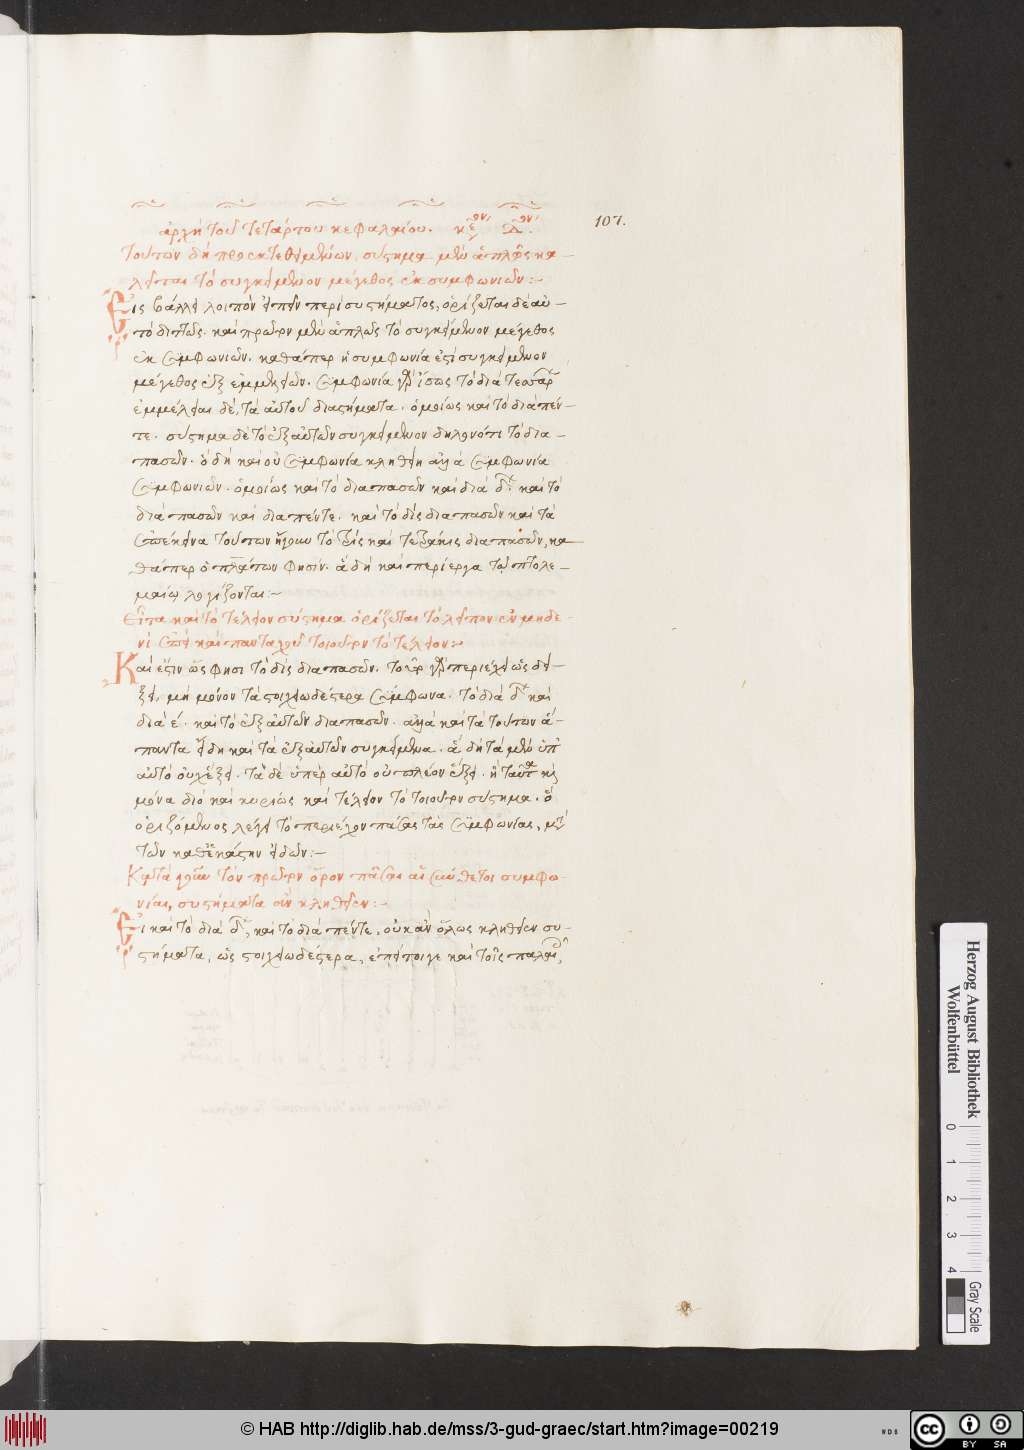 107.
ἀρχὴ τοῦ τετάρτου κεφαλαίου.
τούτων δὴ προεκτεθειμένων, σύστημα μὲν ἁπλῶς κα-
λεῖται τὸ συγκείμενον μέγεθος ἐκ συμφωνιῶν:-
Εἰσβάλλει λοιπὸν εἰπεῖν περὶ συστήματος, ὁρίζεται δὲ αὐ-
τὸ διττῶς. καὶ πρῶτον μὲν ἁπλῶς τὸ συγκείμενον μέγεθος
ἐκ συμφωνιῶν. καθάπερ ἡ συμφωνία ἐστὶ συγκείμενον
μέγεθος ἐξ ἐμμελειῶν. συμφωνία γὰρ ἴσως τὸ διὰ τεσσάρ
ἐμμέλειαι δὲ, τὰ αὐτοῦ διαστήματα. ὁμοίως καὶ τὸ διὰ πέν-
τε. σύστημα δὲ τὸ ἐξ αὐτῶν συγκείμενον δηλονότι τὸ δια-
πασῶν. ὃ δὴ καὶ οὐ συμφωνία κληθείη ἀλλὰ συμφωνία
συμφωνιῶν. ὁμοίως καὶ τὸ διαπασῶν καὶ διὰ δ καὶ τὸ
διὰ πασῶν καὶ διαπέντε. καὶ τὸ δὶς διαπασῶν καὶ τὰ
ἐπέκεινα τούτων ἤγουν τὸ τρὶς καὶ τετράκις διαπασῶν, κα
θάπερ ὁ πλάτων φησίν. ἃ δὴ καὶ περίεργα τῷ πτολε-
μαίῳ λογίζονται:~
Εἶτα καὶ τὸ τέλειον σύστημα ὁρίζεται τὸ λεῖπον ἐν μηδε-
νὶ ἐπεὶ καὶ πανταχοῦ τοιοῦτον τὸ τέλειον:~
Καὶ ἔστιν ὥς φησι τὸ δὶς διαπασῶν. τοῦτο γὰρ περιέχει ὡς δεί-
ξει, μὴ μόνον τὰ στοιχειωδέστερα σύμφωνα. τὸ διὰ δ καὶ
διὰ ε. καὶ τὸ ἐξ αὐτῶν διαπασῶν. ἀλλὰ καὶ τὰ τούτων ἅ-
παντα εἴδη καὶ τὰ ἐξ αὐτῶν συγκείμενα. ἃ δὴ τὰ μὲν ὑπ'
αὐτὸ οὐχ ἕξει. τὰ δὲ ὑπὲρ αὐτὸ οὐ πλέον ἕξει. ἢ ταῦτα καὶ
μόνα διὸ καὶ κυρίως καὶ τέλειον τὸ τοιοῦτον σύστημα. ὃ
ὁριζόμενος λέγει τὸ περιέχον πάσας τὰς συμφωνίας, μετὰ
τῶν καθ' ἑκάστην εἰδῶν:-
Κατὰ γοῦν τὸν πρῶτον ὅρον πᾶσαι αἱ σύνθετοι συμφω-
νίαι, συστήματα ἂν κληθεῖεν:-
Εἰ καὶ τὸ διὰ δ, καὶ τὸ διὰ πέντε, οὐκ ἂν ὅλως κληθεῖεν συ-
στήματα, ὡς στοιχειωδέστερα, ἐπείτοιγε καὶ τοῖς παλαι
Herzog August Bibliothek
Wolfenbüttel
0 1 2 3 4
Gray Scale
© HAB http://diglib.hab.de/mss/3-gud-graec/start.htm?image=00219
WDB
cc BY SA